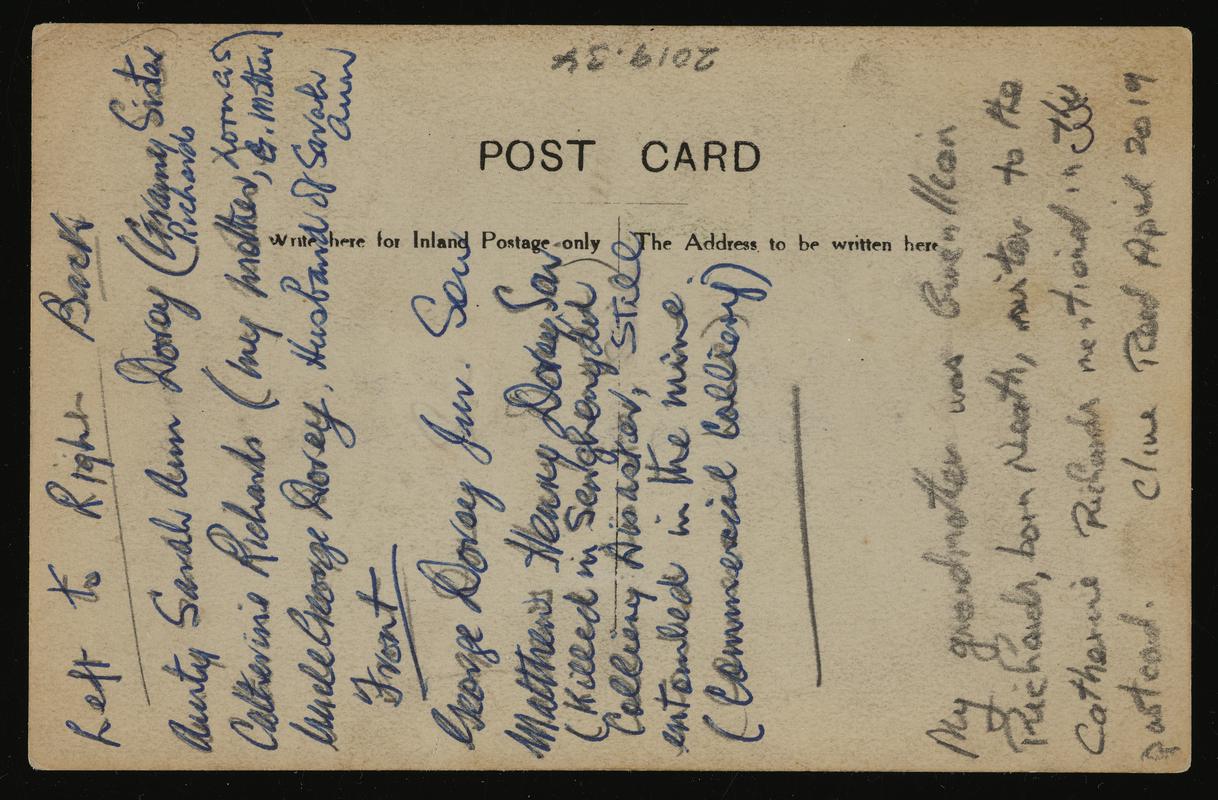 Left to Right Back
Aunty Sarah Ann Dorey (Granny Richards Sister
Catherine Richards (my mother, G. Mither)
Uncle George Dorey, Husband of Sarah Ann
Front
George Dorey Jnr. Son
Matthew Henry Dorey Son
(Killed in Senghenydd
Colliery Disaster, Still
entombed in the mine.
(Commercial Colliery)
My grandmother was
Richards, born Neath, sister to the
Catherine Richards mentioned in the
postcard. Clive April 2019
POST CARD
Write here for Inland Postage only
The Address to be written here
2019.34